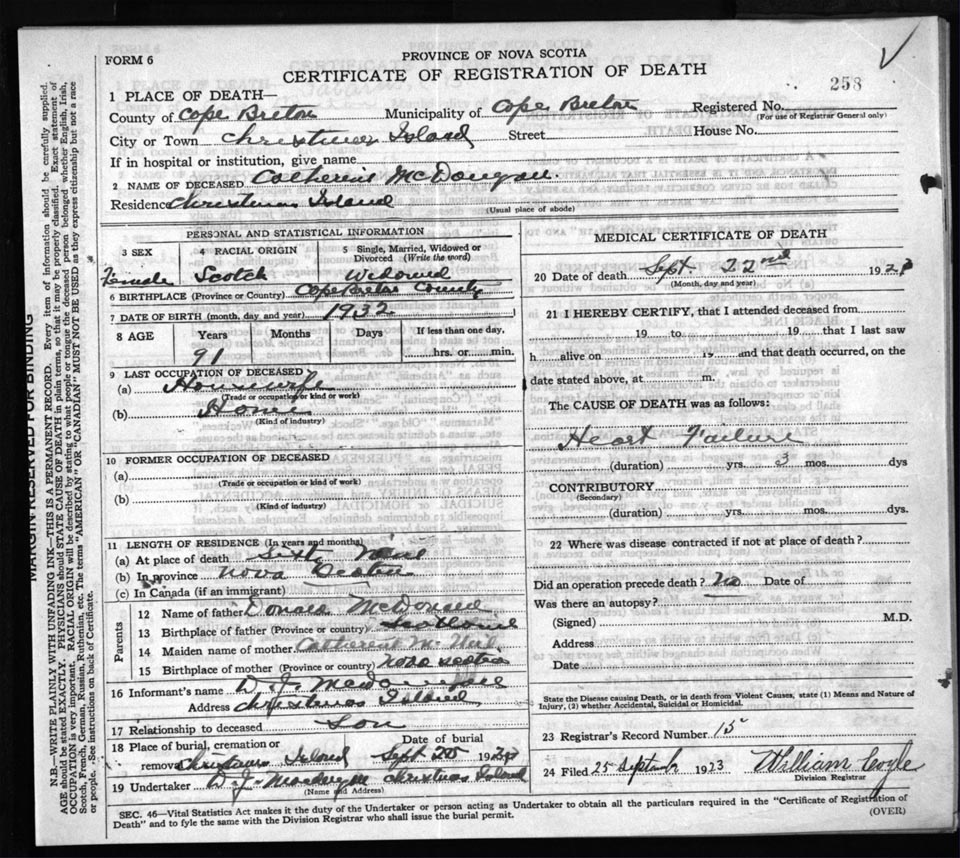 FORM 6
PROVINCE OF NOVA SCOTIA
CERTIFICATE OF REGISTRATION OF DEATH
258
1 PLACE OF DEATH—
County of Cape Breton Municipality of Cape Breton Registered No.
(For use of Registrar General only)
City or Town Christmas Island Street House No.
If in hospital or institution, give name
2 NAME OF DECEASED Catherine McDougall
Residence Christmas Island
(Usual place of abode)
PERSONAL AND STATISTICAL INFORMATION
3 SEX 4 RACIAL ORIGIN 5 Single, Married, Widowed or Divorced (Write the word)
Female Scotch Widowed
6 BIRTHPLACE (Province or Country) Cape Breton County
7 DATE OF BIRTH (month, day and year) 1932
8 AGE Years Months Days If less than one day,
91 hrs. or min.
9 LAST OCCUPATION OF DECEASED
(a) Housewife
(Trade or occupation or kind or work)
(b) Home
(Kind of industry)
10 FORMER OCCUPATION OF DECEASED
(a)
(Trade or occupation or kind of work)
(b)
(Kind of industry)
11 LENGTH OF RESIDENCE (In years and months)
(a) At place of death
(b) In province Nova Scotia
(c) In Canada (if an immigrant)
Parents
12 Name of father Donald McDonald
13 Birthplace of father (Province or country) Scotland
14 Maiden name of mother Catherine McNeil
15 Birthplace of mother (Province or country) Nova Scotia
16 Informant's name D. J. McDougall
Address Christmas Island
17 Relationship to deceased Son
18 Place of burial, cremation or removal Date of burial
Christmas Island Sept 25 1923
19 Undertaker D. J. McDougall Christmas Island
(Name and Address)
MEDICAL CERTIFICATE OF DEATH
20 Date of death Sept 22nd 192
(Month, day and year)
21 I HEREBY CERTIFY, that I attended deceased from
19 to 19 that I last saw
h alive on 19 and that death occurred, on the
date stated above, at m.
The CAUSE OF DEATH was as follows:
Heart Failure
(duration) yrs. 3 mos. dys
CONTRIBUTORY
(Secondary)
(duration) yrs. mos. dys.
22 Where was disease contracted if not at place of death?
Did an operation precede death? No Date of
Was there an autopsy?
(Signed) M.D.
Address
Date
State the Disease causing Death, or in death from Violent Causes, state (1) Means and Nature of
Injury, (2) whether Accidental, Suicidal or Homicidal.
23 Registrar's Record Number 15
24 Filed 25 September 1923 William Coyle
Division Registrar
SEC. 46—Vital Statistics Act makes it the duty of the Undertaker or person acting as Undertaker to obtain all the particulars required in the "Certificate of Registration of
Death" and to fyle the same with the Division Registrar who shall issue the burial permit.
(OVER)
MARGIN RESERVED FOR BINDING
N.B.—WRITE PLAINLY WITH UNFADING INK—THIS IS A PERMANENT RECORD. Every item of information should be carefully supplied.
AGE should be stated EXACTLY. PHYSICIANS should STATE CAUSE OF DEATH in plain terms, so that it may be properly classified. Exact statement of
OCCUPATION is very important. RACIAL ORIGIN will be described by stating to what people or tongue the deceased person belonged whether English, Irish,
Scotch, French, German, Russian, Ruthenian, etc. The terms "AMERICAN" OR "CANADIAN" MUST NOT BE USED as they express citizenship but not a race
or people. -See instructions on back of Certificate.